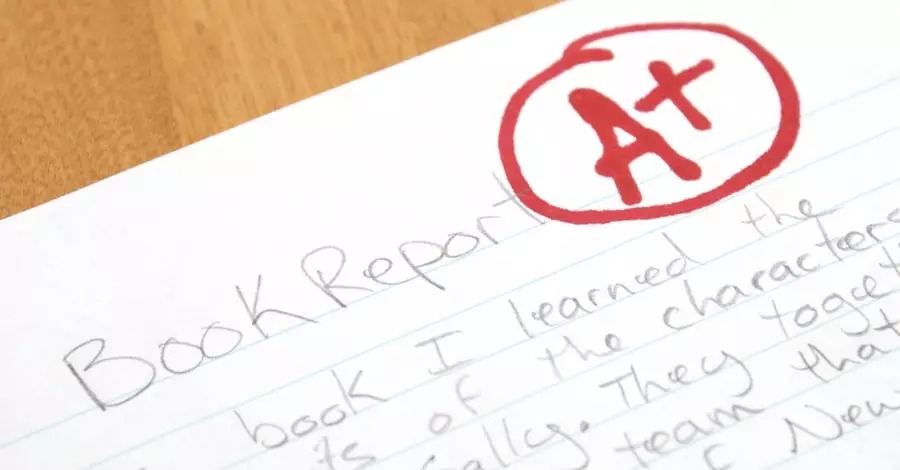 A+
Book Report
book I learned the
of the characters
They
team that
New